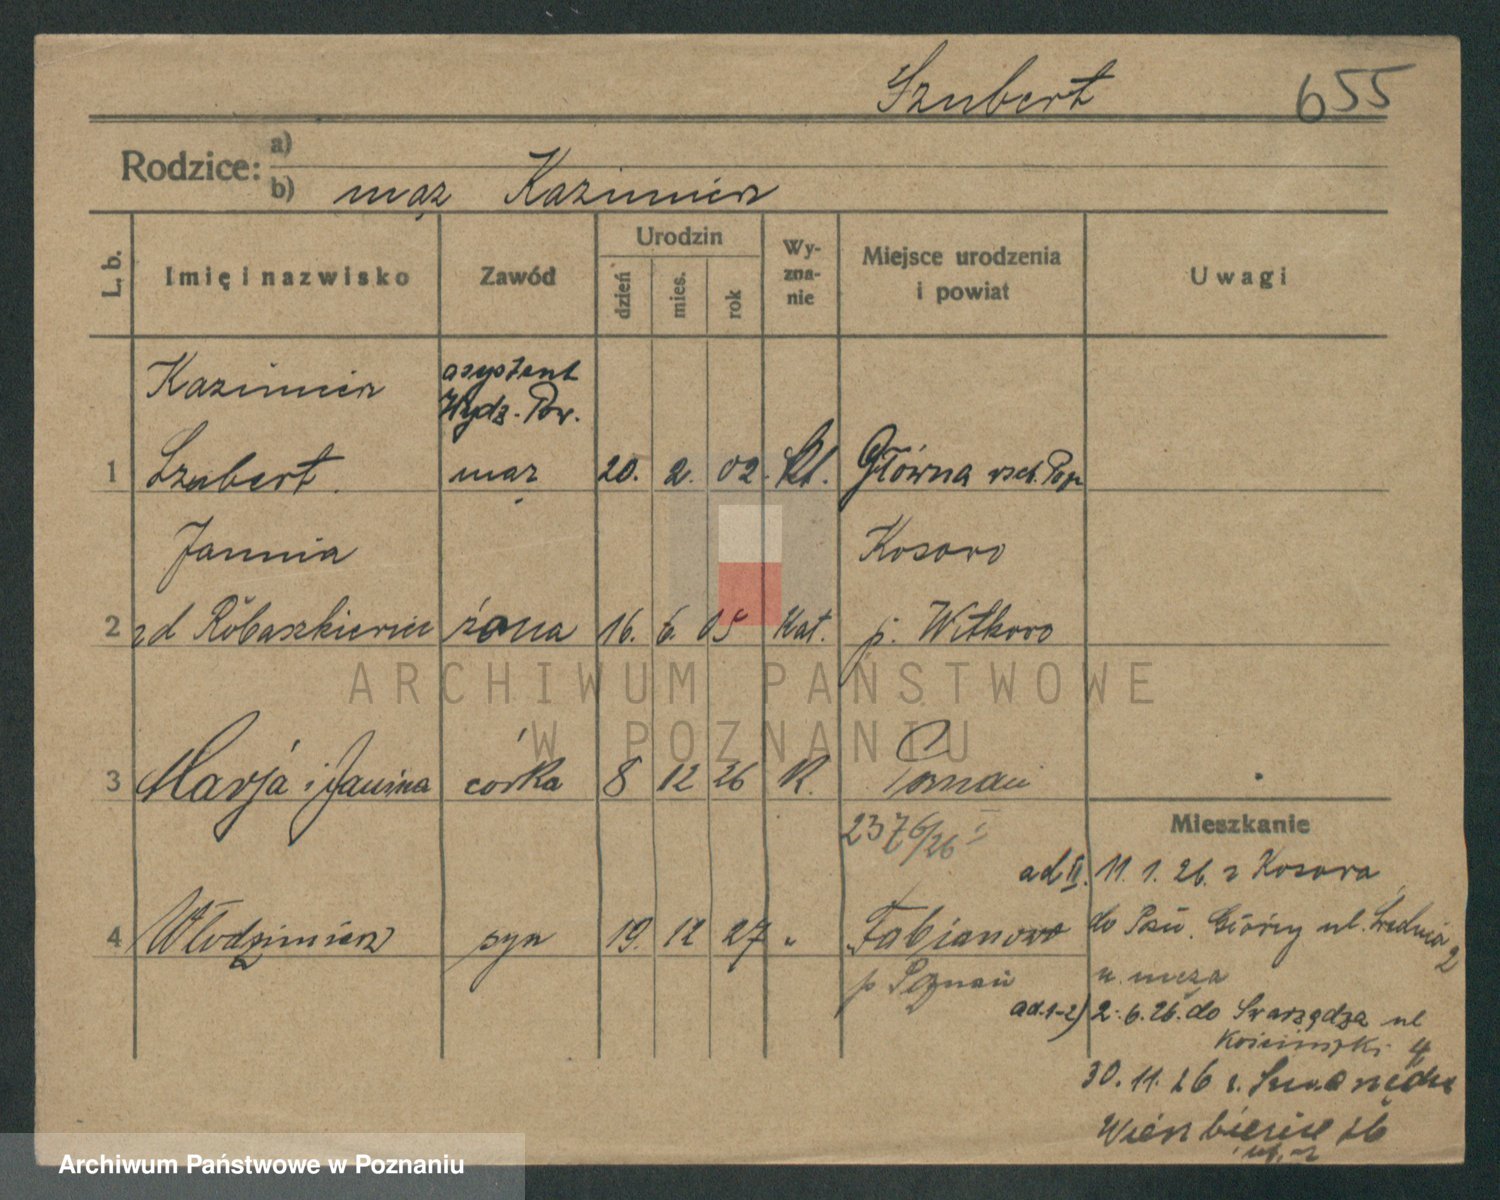 Szubert 655
Rodzice: a)
b) mąż Kazimierz
L. b.
Imię i nazwisko
Zawód
Urodzin
dzień
mies.
rok
Wy-
zna-
nie
Miejsce urodzenia
i powiat
Uwagi
Kazimierz asystent
Wydz. Pow.
1 Szubert mąż 20. 2. 02. kt. Główna wsch.
Janina Kosowo
2 zd Robaszkiewicz żona 16. 6. 05 Kat. p. Witkowo
ARCHIWUM PAŃSTWOWE
W POZNANIU
3 Marja i Janina córka 8 12 26 K. Poznań
2376/26 I
Mieszkanie
ad II. 11. 1. 26. z Kosowa
4 Włodzimierz syn 19. 12 27 " Fabianowo
do Pozn. ul. Średnia 2
p Poznań
u. męża
ad. 1-2) 2. 6. 26. do Swarzędza ul
4
30. 11. 26 z. Swarzędza
Wierzbięcice 26
Archiwum Państwowe w Poznaniu